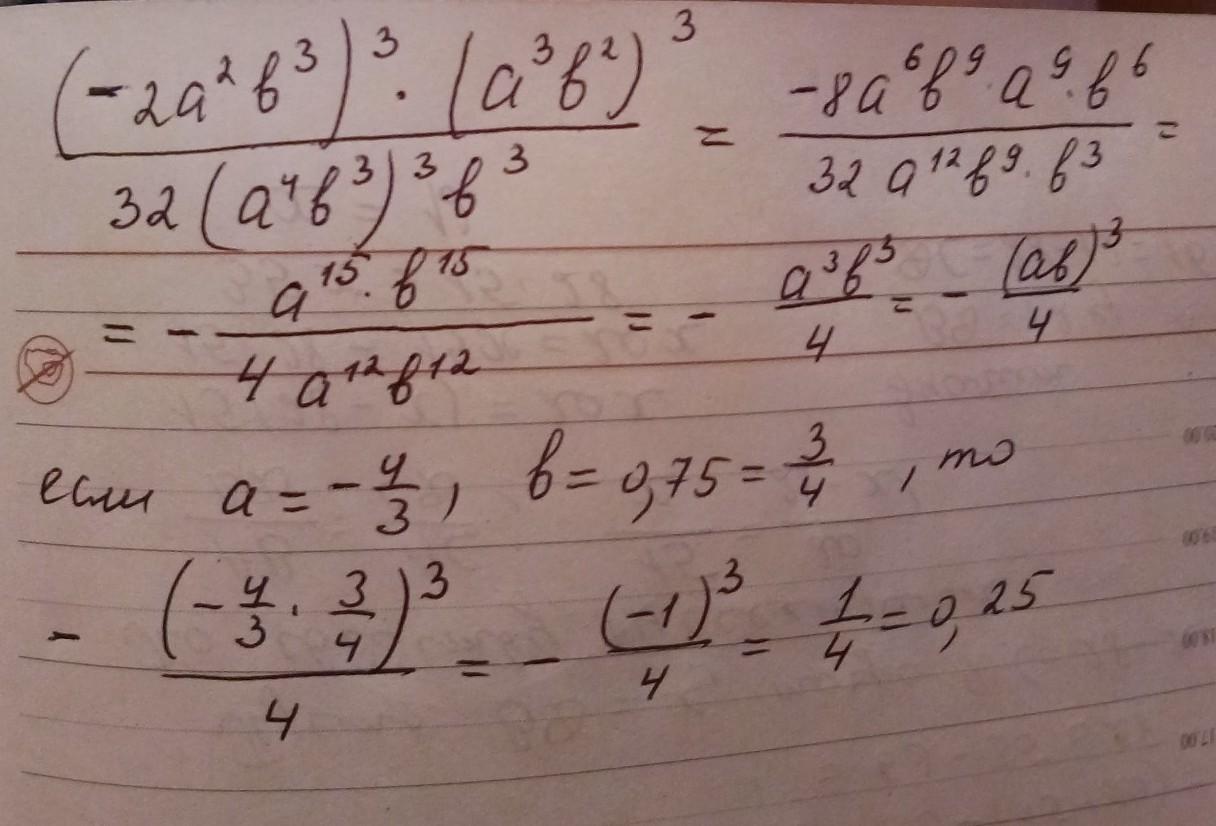 (-2a²b³)³ · (a³b²)³ / 32(a⁴b³)³b³ = -8a⁶b⁹·a⁹·b⁶ / 32a¹²b⁹·b³ =
= - a¹⁵·b¹⁵ / 4a¹²b¹² = - a³b³ / 4 = - (ab)³ / 4
если a = - 4/3, b = 0,75 = 3/4, то
- (- 4/3 · 3/4)³ / 4 = - (-1)³ / 4 = 1/4 = 0,25